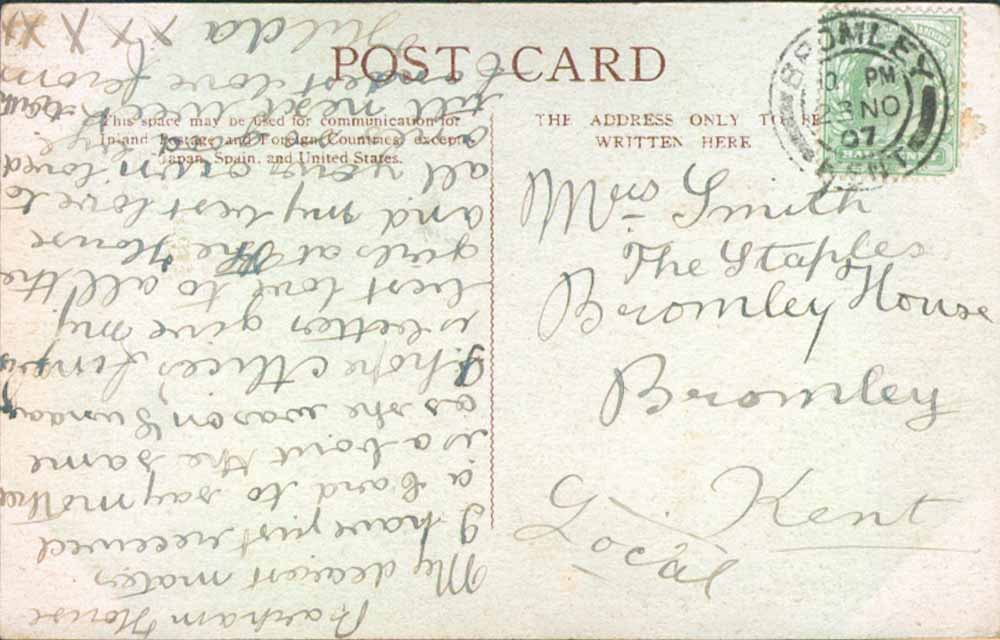 POST CARD
This space may be used for communication for
Inland Postage and Foreign Countries, except
Japan, Spain, and United States.
THE ADDRESS ONLY TO BE
WRITTEN HERE
BROMLEY
PM
NO
07
KENT
Mrs Smith
The Staples
Bromley House
Bromley
Kent
Local
House
My dearest mater
I have just received
a card to say mother
is about the same
as she was on Sunday
I hope Alice's finger
is better give my
best love to all the
girls at the House
and my best love to
all your own loved
till next week
best love from
Hilda
X X X X X